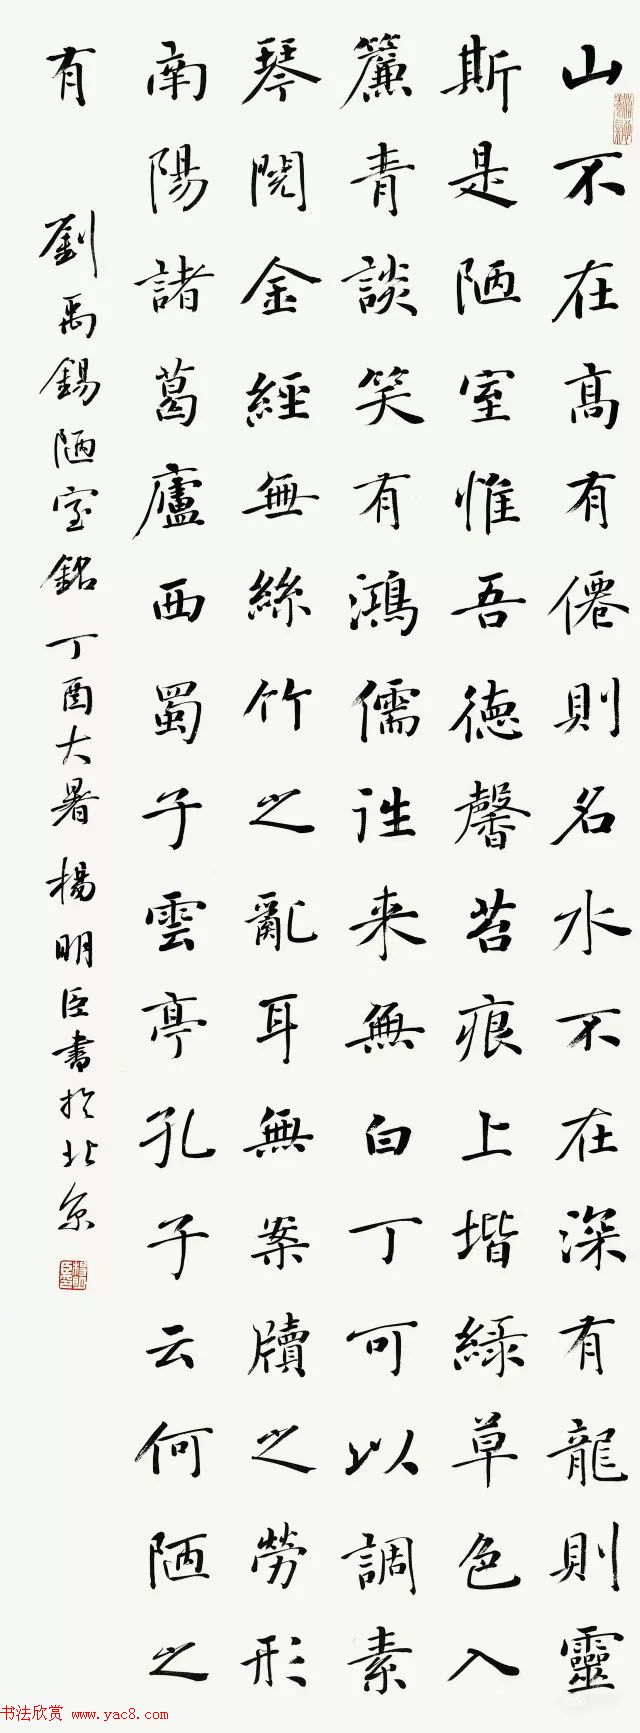 山不在高有僊則名水不在深有龍則靈
斯是陋室惟吾德馨苔痕上堦綠草色入
簾青談笑有鴻儒往来無白丁可以調素
琴閱金經無絲竹之亂耳無案牘之勞形
南陽諸葛廬西蜀子雲亭孔子云何陋之
有
劉禹錫陋室銘丁酉大暑楊明臣書於北京
书法欣赏 www.yac8.com